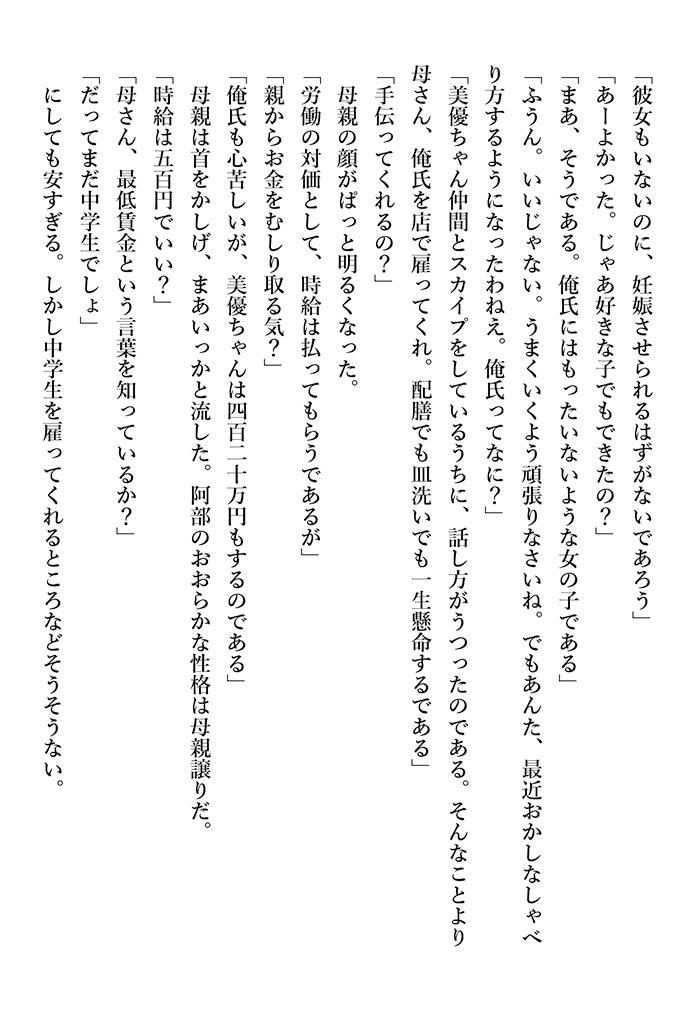 「彼女もいないのに、妊娠させられるはずがないであろう」
「あーよかった。じゃあ好きな子でもできたの？」
「まあ、そうである。俺氏にはもったいないような女の子である」
「ふうん。いいじゃない。うまくいくよう頑張りなさいね。でもあんた、最近おかしなしゃべ
り方するようになったわねえ。俺氏ってなに？」
「美優ちゃん仲間とスカイプをしているうちに、話し方がうつったのである。そんなことより
母さん、俺氏を店で雇ってくれ。配膳でも皿洗いでも一生懸命するである」
「手伝ってくれるの？」
　母親の顔がぱっと明るくなった。
「労働の対価として、時給は払ってもらうであるが」
「親からお金をむしり取る気？」
「俺氏も心苦しいが、美優ちゃんは四百二十万円もするのである」
　母親は首をかしげ、まあいっかと流した。阿部のおおらかな性格は母親譲りだ。
「時給は五百円でいい？」
「母さん、最低賃金という言葉を知っているか？」
「だってまだ中学生でしょ」
　にしても安すぎる。しかし中学生を雇ってくれるところなどそうそうない。